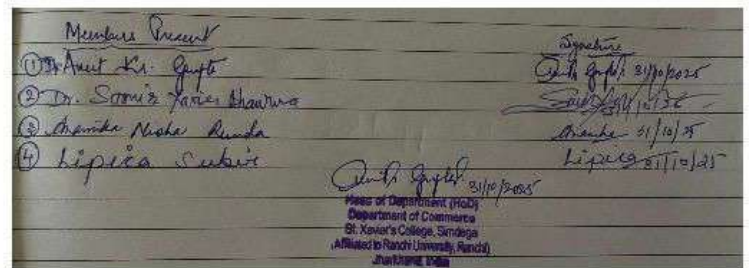 Members Present
Signature
① Dr. Amit Kr. Gupta
Amit Gupta 31/10/2025
② Dr. Soonis Xavier
31/10/25
③ Anamika Nisha Runda
Anamika 31/10/25
④ Lipica Subir
Lipica 31/10/25
Amit Gupta 31/10/2025
Head of Department (HoD)
Department of Commerce
St. Xavier's College, Simdega
(Affiliated to Ranchi University, Ranchi)
Jharkhand, India